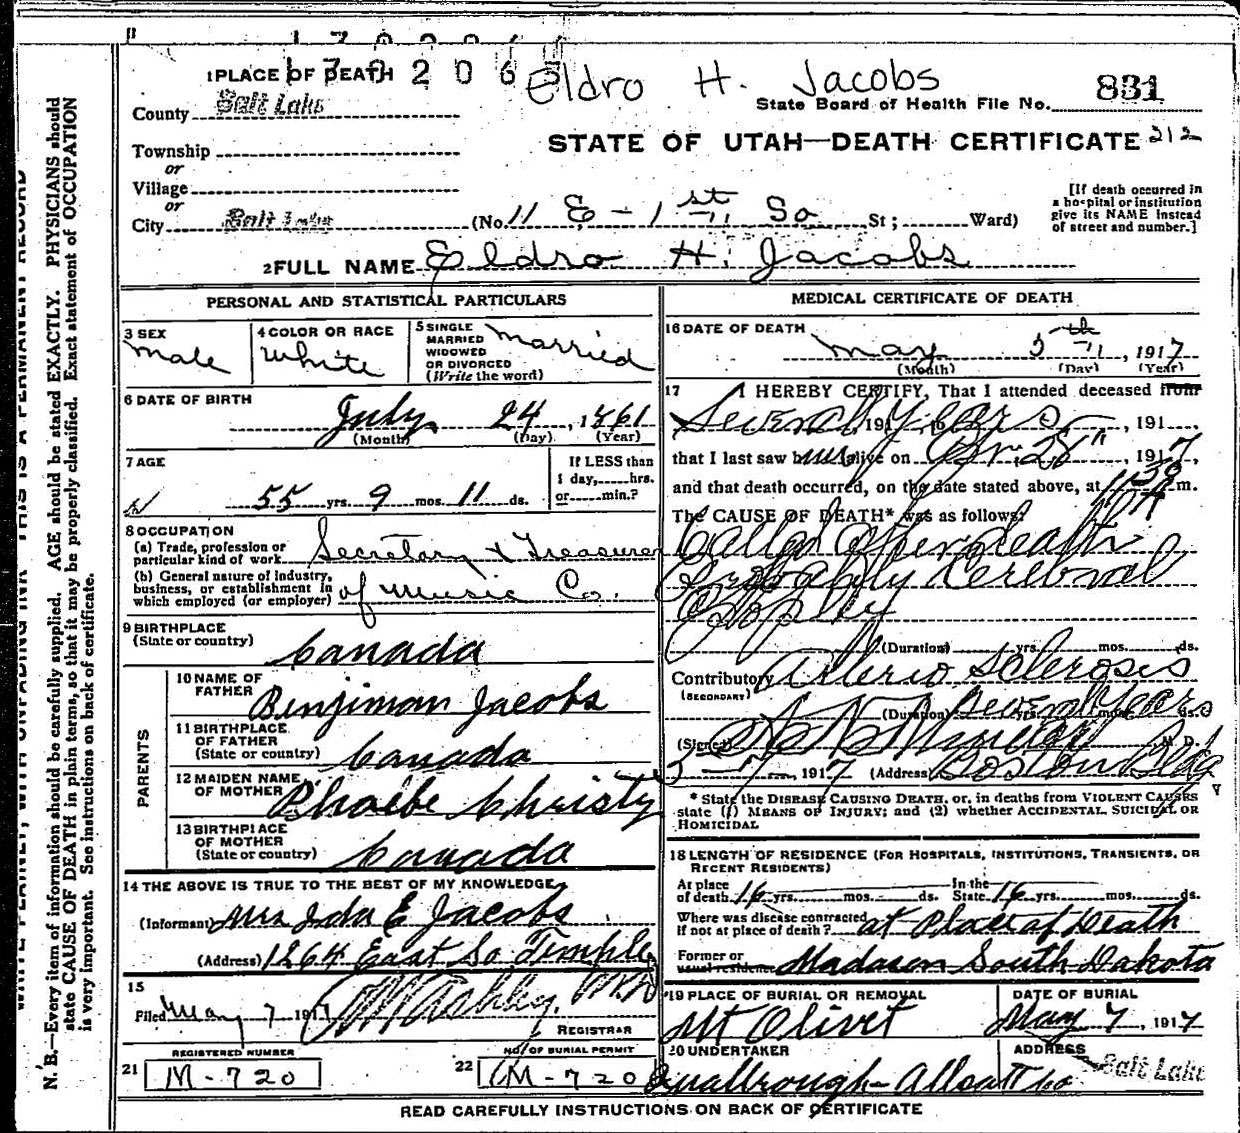 1702065
1 PLACE OF DEATH
Eldro H. Jacobs
County Salt Lake
State Board of Health File No. 831
Township
STATE OF UTAH—DEATH CERTIFICATE 212
or
Village
or
City Salt Lake (No. 11 E - 1st So St; Ward)
[If death occurred in a hospital or institution give its NAME instead of street and number.]
2 FULL NAME Eldro H. Jacobs
PERSONAL AND STATISTICAL PARTICULARS
3 SEX Male
4 COLOR OR RACE White
5 SINGLE MARRIED WIDOWED OR DIVORCED (Write the word) Married
6 DATE OF BIRTH
July 24, 1861
(Month) (Day) (Year)
7 AGE
55 yrs. 9 mos. 11 ds.
If LESS than 1 day, hrs. or min.?
8 OCCUPATION
(a) Trade, profession or particular kind of work Secretary & Treasurer
(b) General nature of industry, business, or establishment in which employed (or employer) of Music Co.
9 BIRTHPLACE
(State or country) Canada
PARENTS
10 NAME OF FATHER Benjiman Jacobs
11 BIRTHPLACE OF FATHER (State or country) Canada
12 MAIDEN NAME OF MOTHER Phoebe Christy
13 BIRTHPLACE OF MOTHER (State or country) Canada
14 THE ABOVE IS TRUE TO THE BEST OF MY KNOWLEDGE
(Informant) Mrs Ida E Jacobs
(Address) 1264 East So Temple
15
Filed May 7 1917
REGISTRAR
REGISTERED NUMBER
21 M-720
NO. OF BURIAL PERMIT
22 M-720
MEDICAL CERTIFICATE OF DEATH
16 DATE OF DEATH
May 5th, 1917
(Month) (Day) (Year)
17 I HEREBY CERTIFY, That I attended deceased from
Several years, 191, to, 191,
that I last saw him alive on Apr. 28", 1917,
and that death occurred, on the date stated above, at m.
The CAUSE OF DEATH* was as follows:
Called after death
Probably Cerebral
(Duration) yrs. mos. ds.
Contributory Arterio Sclerosis
(SECONDARY)
(Duration) Several Years yrs. mos. ds.
(Signed) M. D.
5-7, 1917 (Address) Boston Bldg
* State the DISEASE CAUSING DEATH, or, in deaths from VIOLENT CAUSES
state (1) MEANS OF INJURY; and (2) whether ACCIDENTAL, SUICIDAL OR
HOMICIDAL
18 LENGTH OF RESIDENCE (FOR HOSPITALS, INSTITUTIONS, TRANSIENTS, OR
RECENT RESIDENTS)
At place of death 16 yrs. mos. ds. In the State 16 yrs. mos. ds.
Where was disease contracted if not at place of death? at Place of Death
Former or usual residence Madason South Dakota
19 PLACE OF BURIAL OR REMOVAL
Mt Olivet
DATE OF BURIAL
May 7, 1917
20 UNDERTAKER
ADDRESS
Salt Lake
READ CAREFULLY INSTRUCTIONS ON BACK OF CERTIFICATE
N. B.—Every item of information should be carefully supplied. AGE should be stated EXACTLY. PHYSICIANS should
state CAUSE OF DEATH in plain terms, so that it may be properly classified. Exact statement of OCCUPATION
is very important. See instructions on back of certificate.